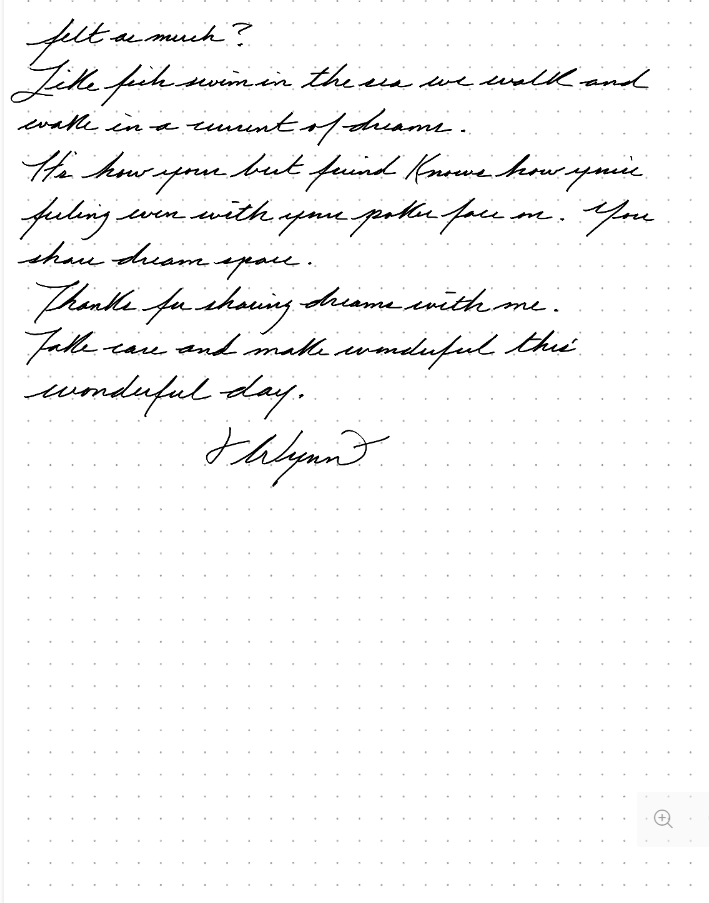 felt as much?
Like fish swim in the sea we walk and
wake in a current of dreams.
It's how your best friend knows how you're
feeling even with your poker face on. You
share dream space.
Thanks for sharing dreams with me.
Take care and make wonderful this
wonderful day.